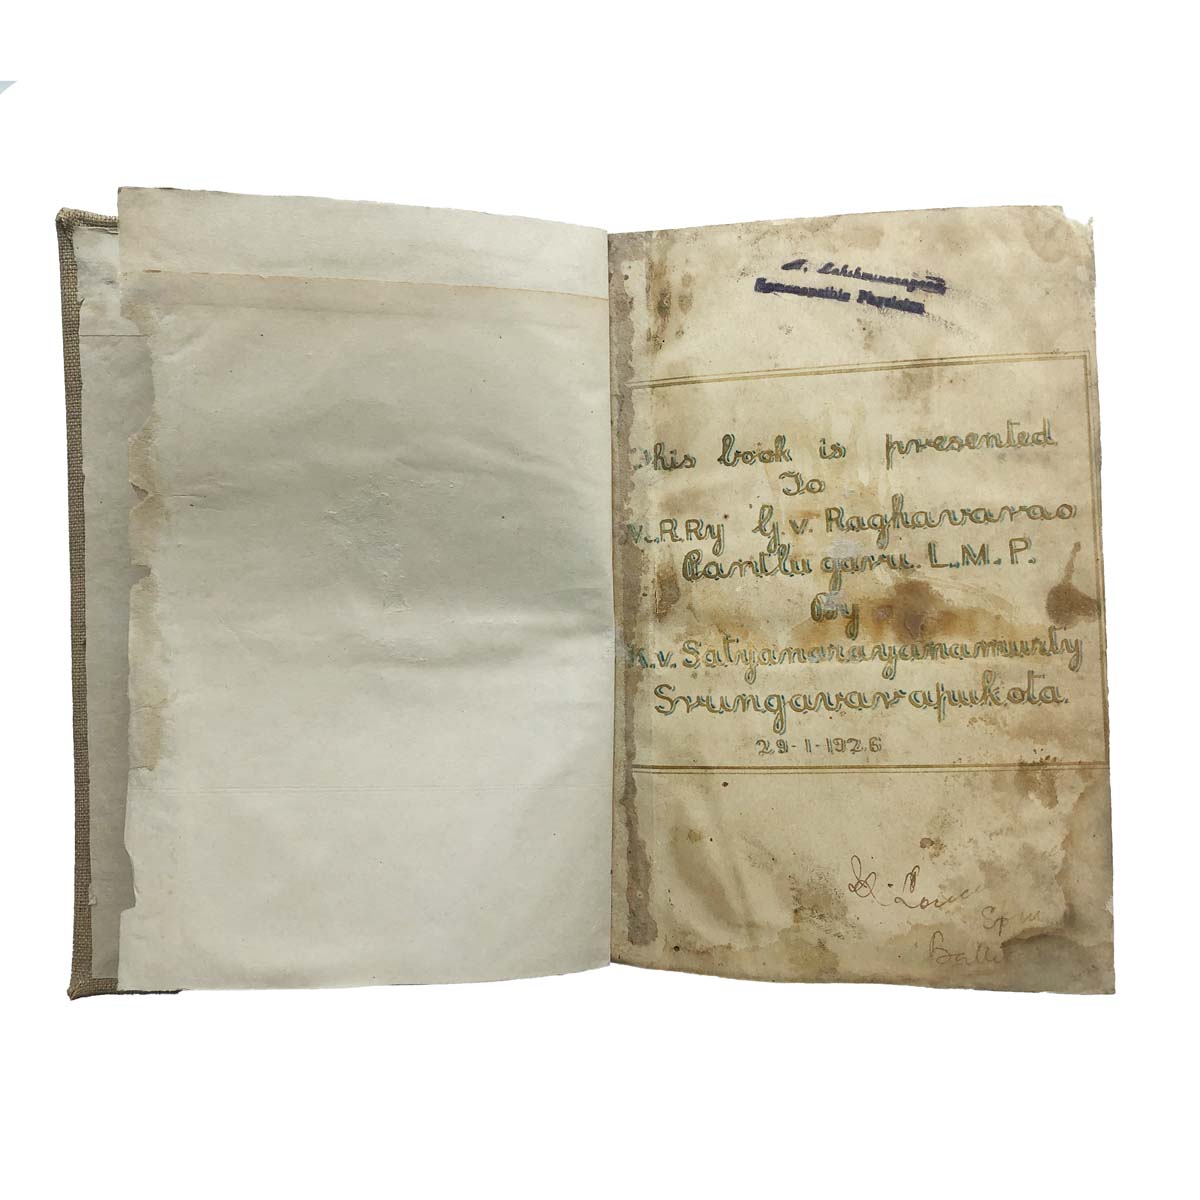 Lakshminarayana
Homoeopathic Physician
This book is presented
To
M.R.Ry G. V. Raghavarao
Pantlu garu. L.M.P.
By
K.v. Satyanarayanamurty
Srungavarapukota.
29-1-1926